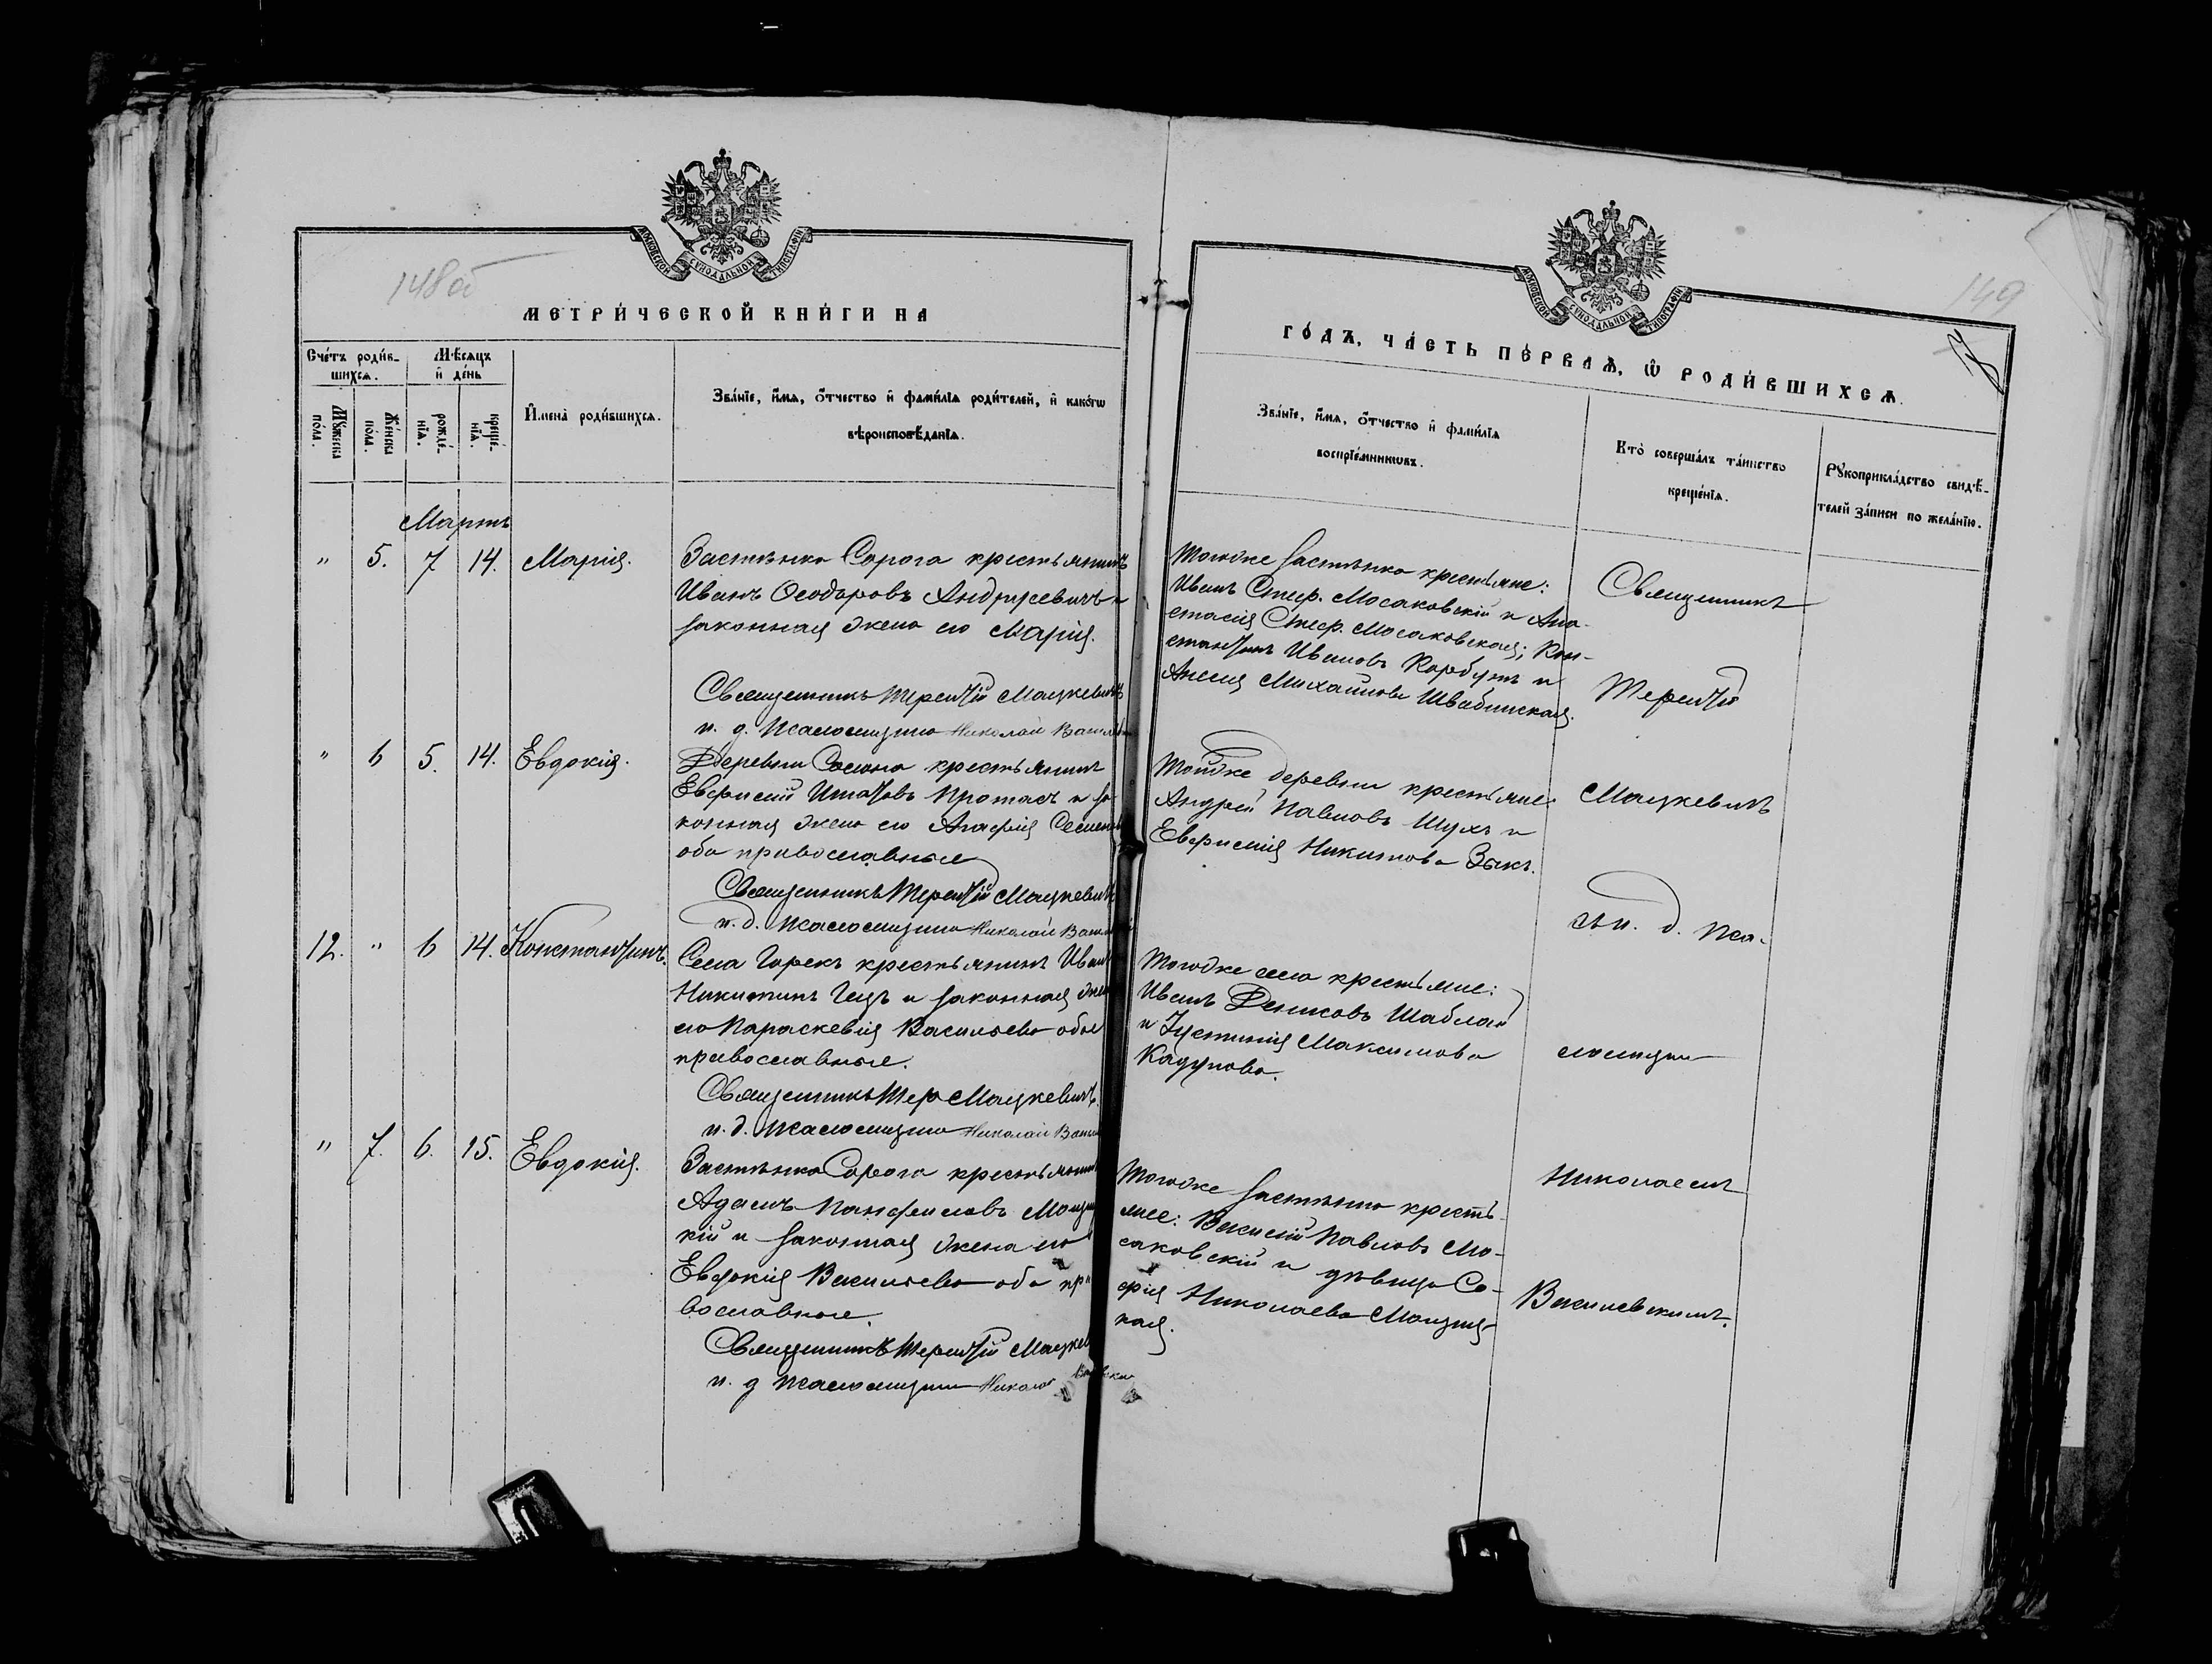 148об
149
МОСКОВСКОЙ СѴНОДАЛЬНОЙ ТИПОГРАФІИ
МЕТРИ́ЧЕСКОЙ КНИ́ГИ НА
Сче́тъ роди́в-
шихсѧ.
Мѣ́сѧцъ
и҆ де́нь
Мꙋ́жеска
по́ла.
Же́нска
по́ла.
рожде́-
нїѧ.
креще́-
нїѧ.
И҆мена̀ роди́вшихсѧ.
Зва́нїе, и҆́мѧ, ѻ҆́тчество и҆ фами́лїѧ роди́телей, и҆ како́гѡ
вѣроисповѣ́данїѧ.
Мартъ
" 5. 7 14. Марія.
Застѣнка Сорога крестьянинъ
Иванъ Ѳеодоровъ Андрусевичъ и
законная жена его Марія.
Священникъ Терентій Мацкевичъ
и. д. псаломщика Николай
" 6 5. 14. Евдокія.
Деревни Сосона крестьянинъ
Евфимій Протасъ и за-
конная жена его Агафія
оба православные
Священникъ Терентій Мацкевичъ
и. д. псаломщика Николай
12. " 6 14. Константинъ.
Села Горекъ крестьянинъ Иванъ
Никитинъ Гецъ и законная жена
его Параскевія Васильева обое
православные.
Священникъ Тер Мацкевичъ.
и. д. псаломщика Николай
" 7. 6. 15. Евдокія.
Застѣнка Сорога крестьянинъ
Адамъ Панфиловъ
кій и законная жена его
Евдокія Васильева оба пра
вославные.
Священникъ Терентій
и. д псаломщика Николай
МОСКОВСКОЙ СѴНОДАЛЬНОЙ ТИПОГРАФІИ
ГО́ДЪ, ЧА́СТЬ ПЕ́РВАѦ, Ѡ҆ РОДИ́ВШИХСѦ.
Зва́нїе, и҆́мѧ, ѻ҆́тчество и҆ фами́лїѧ
воспрїе́мникѡвъ.
Кто̀ соверша́лъ та́инство
креще́нїѧ.
Рꙋкоприкла́дство свидѣ́-
телей за́писи по жела́нїю.
Тогоже застѣнка крестьяне:
Иванъ Стеф. Мосаковскій и Ана-
стасія Стеф. Мосаковская; Кон-
стантинъ Ивановъ Корбутъ и
Михайлова Швабинская.
Тойже деревни крестьяне:
Андрей Павловъ Шухъ и
Евфимія Никитова Зыкъ.
Тогоже села крестьяне:
Иванъ Денисовъ Шаблан
и Іустинія Максимова
Кадунова.
Тогоже застѣнка кресть-
яне: Василій Павловъ Мо-
саковскій и дѣвица Со-
фія Николаева
кая.
Священникъ
Терентій
Мацкевичъ
съ и. д. пса-
ломщика
Николаемъ
Василевскимъ.